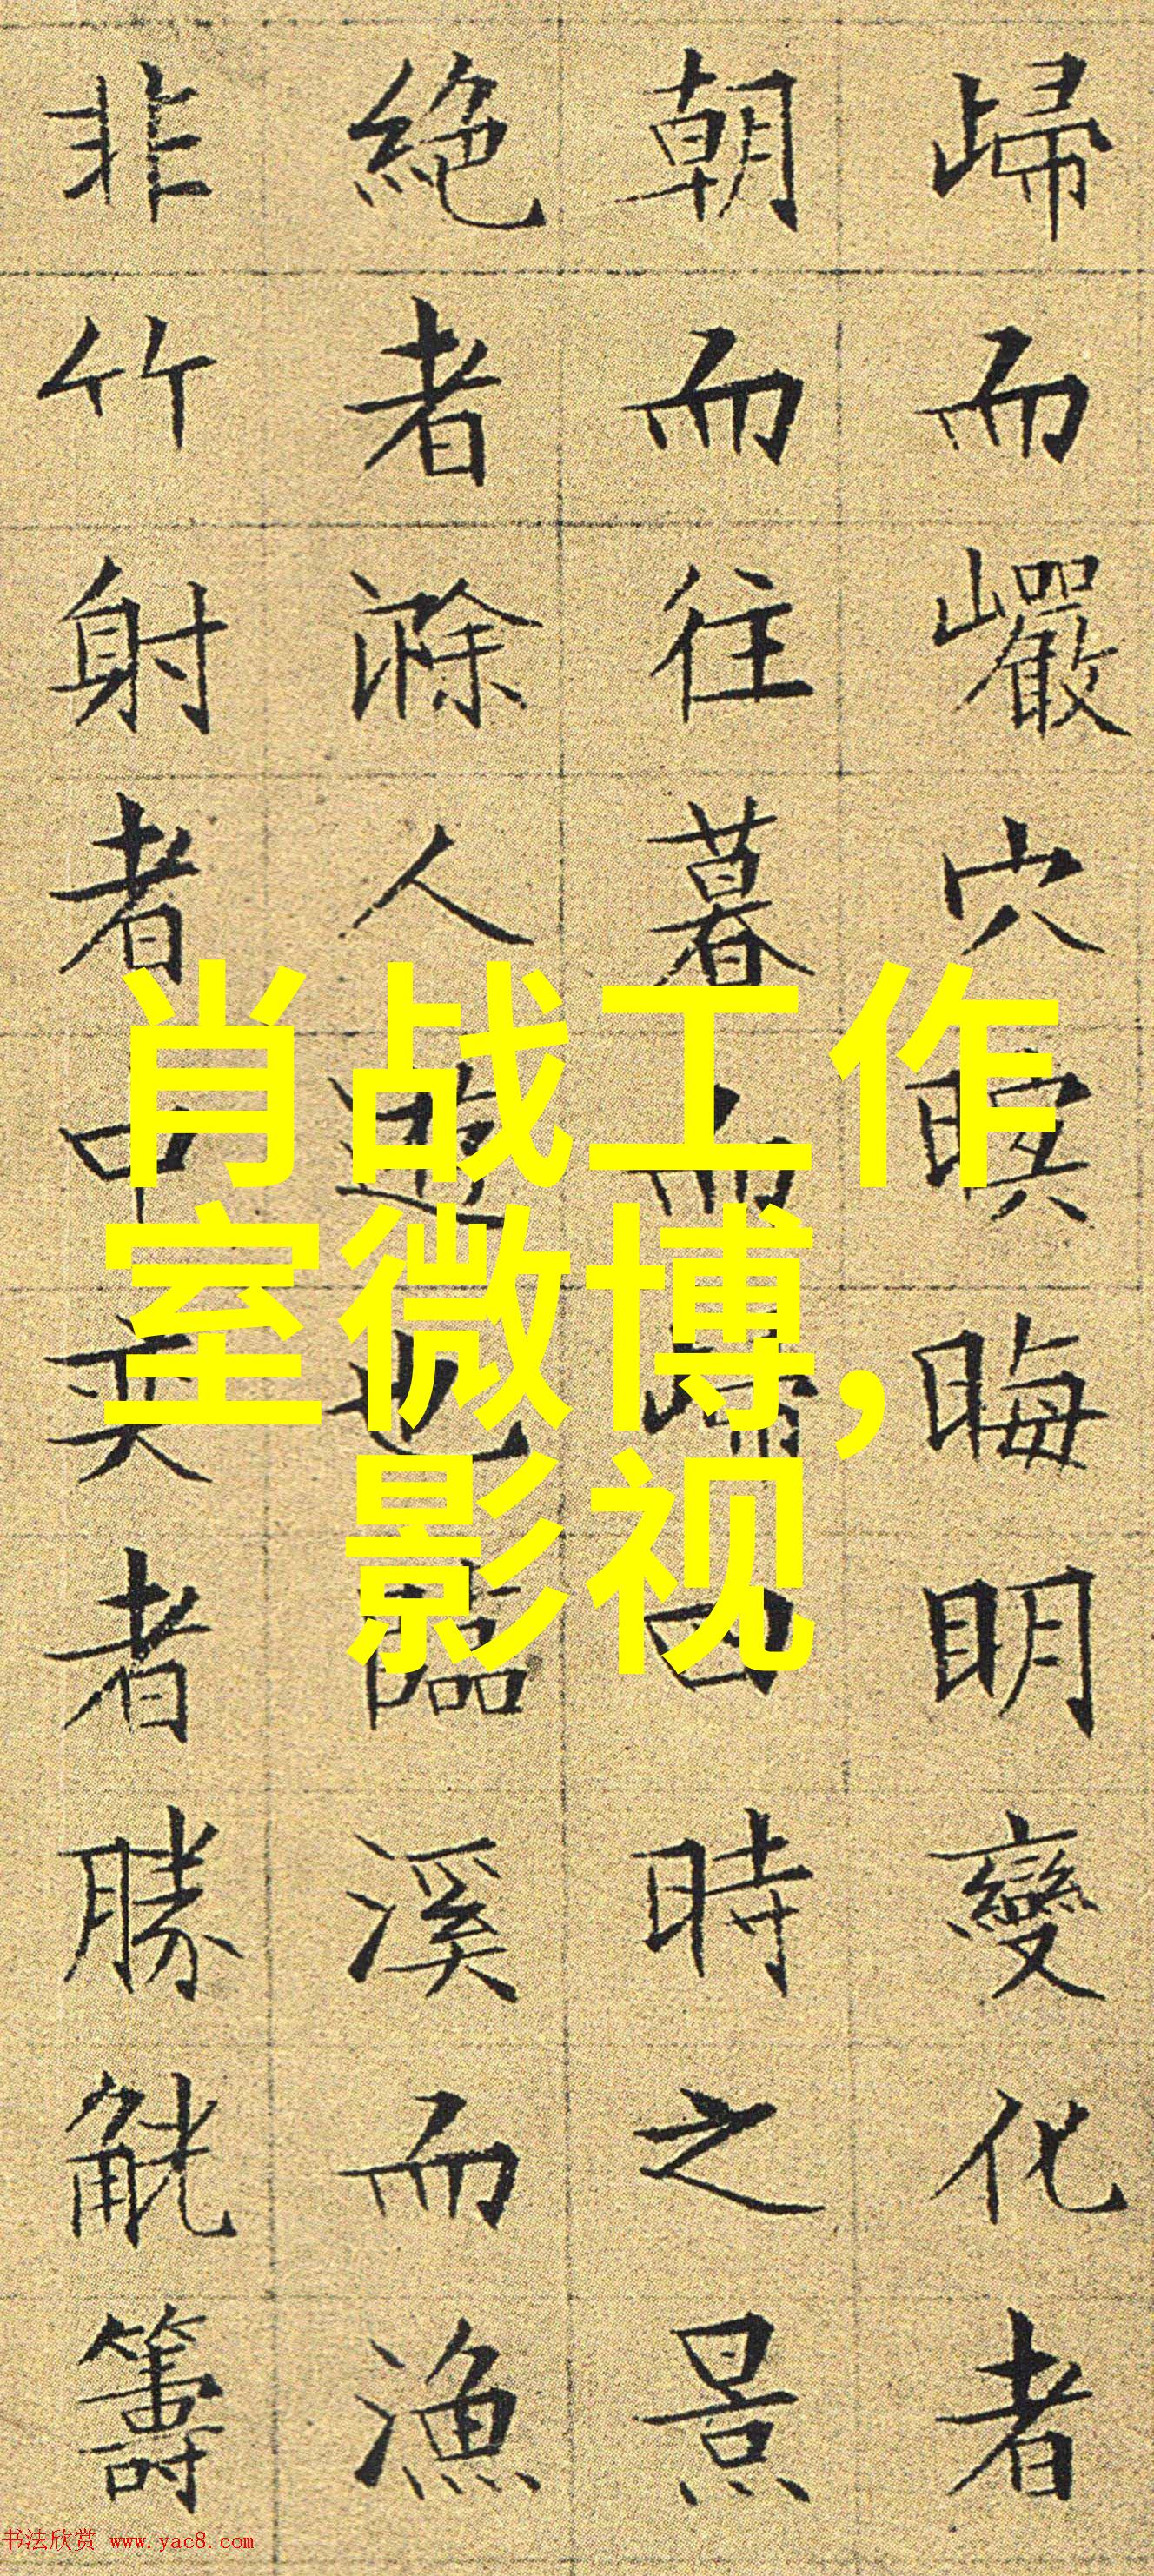 歸而巗穴暝晦明變化者
朝而往暮而歸四時之景
絶者滁人遊也臨溪而漁
非竹射者中奕者勝觥籌
肖战工作
室微博,
影视
书法欣赏 www.yac8.com